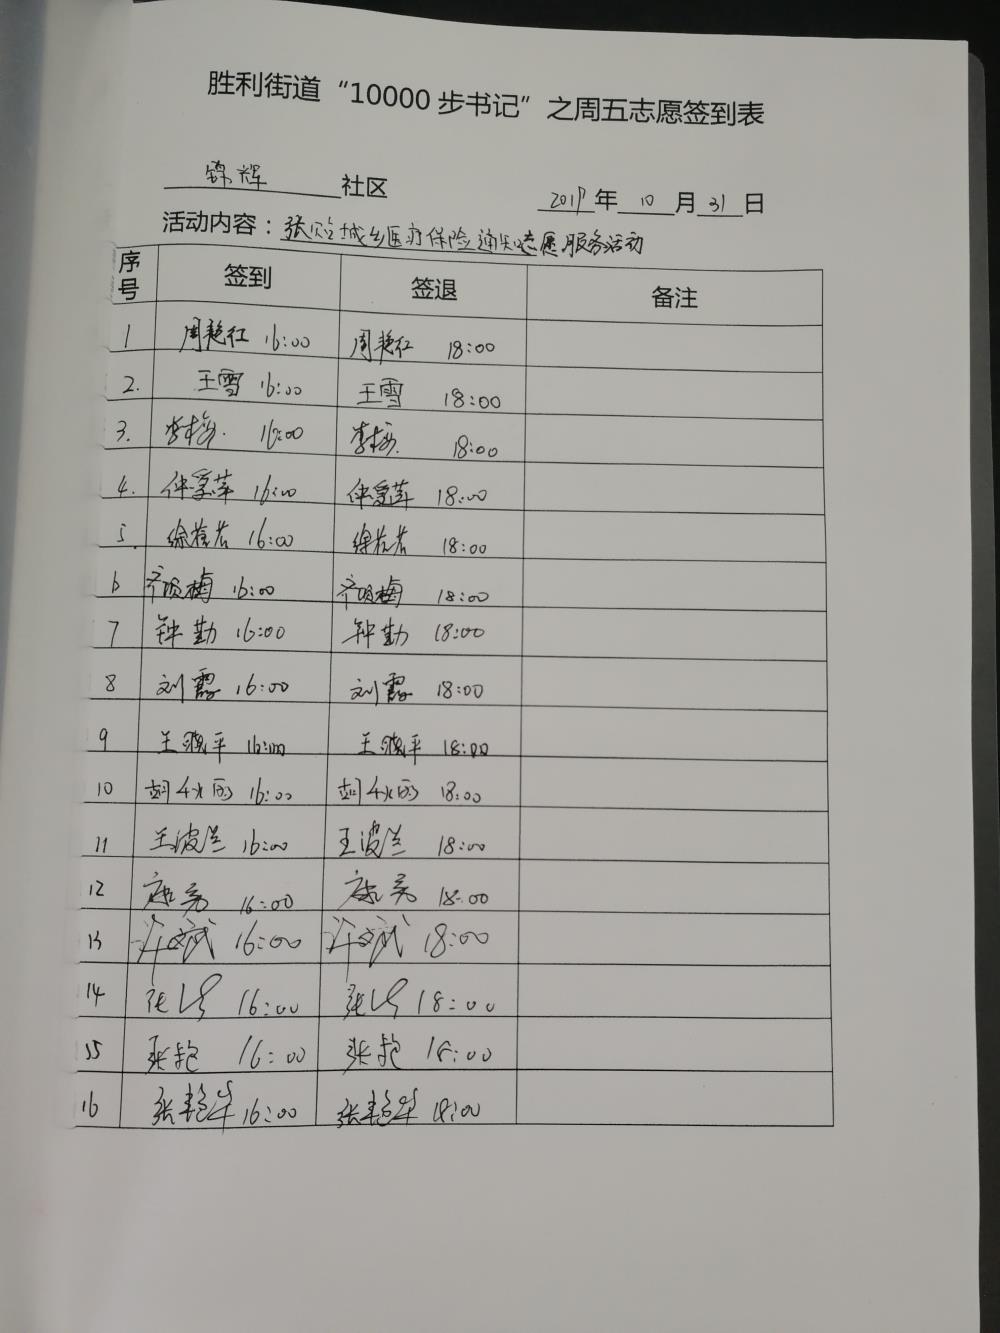 胜利街道“10000步书记”之周五志愿签到表
锦辉 社区 2019年 10 月 31 日
活动内容：张贴城乡医疗保险通知志愿服务活动
序号 签到 签退 备注
1 周艳红 16:00 周艳红 18:00
2. 王雪 16:00 王雪 18:00
3. 李梅. 16:00 李梅. 18:00
4. 仲雪莲 16:00 仲雪莲 18:00
5. 徐 16:00 徐 18:00
6 齐明梅 16:00 齐明梅 18:00
7 钟勤 16:00 钟勤 18:00
8 刘霞 16:00 刘霞 18:00
9 王晓平 16:00 王晓平 18:00
10 胡秋 16:00 胡秋 18:00
11 王波兰 16:00 王波兰 18:00
12 亮 16:00 亮 18:00
13 许文斌 16:00 许文斌 18:00
14 张 16:00 张 18:00
15 张 16:00 张 18:00
16 张艳华 16:00 张艳华 18:00